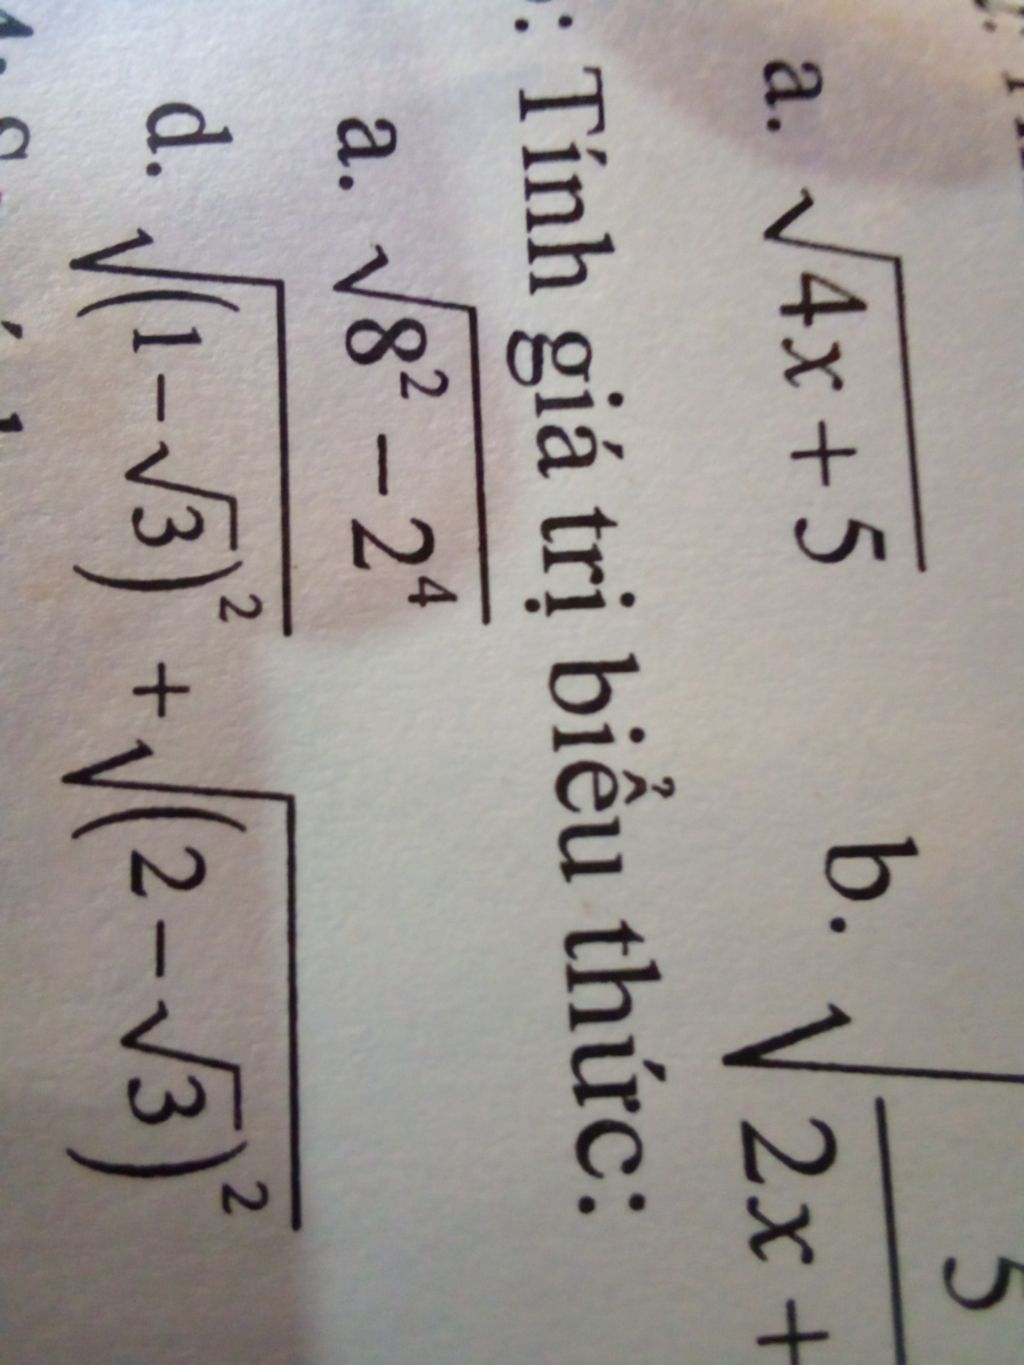 a. √(4x + 5) b. √(5/(2x +
: Tính giá trị biểu thức:
a. √(8² − 2⁴)
d. √((1 − √3)²) + √((2 − √3)²)